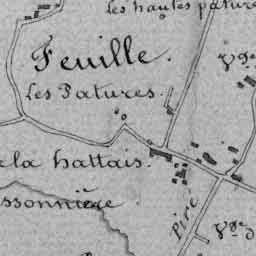 les hautes pature
Feuille.
Les Patures.
ela hattais.
ssonnière
Piré